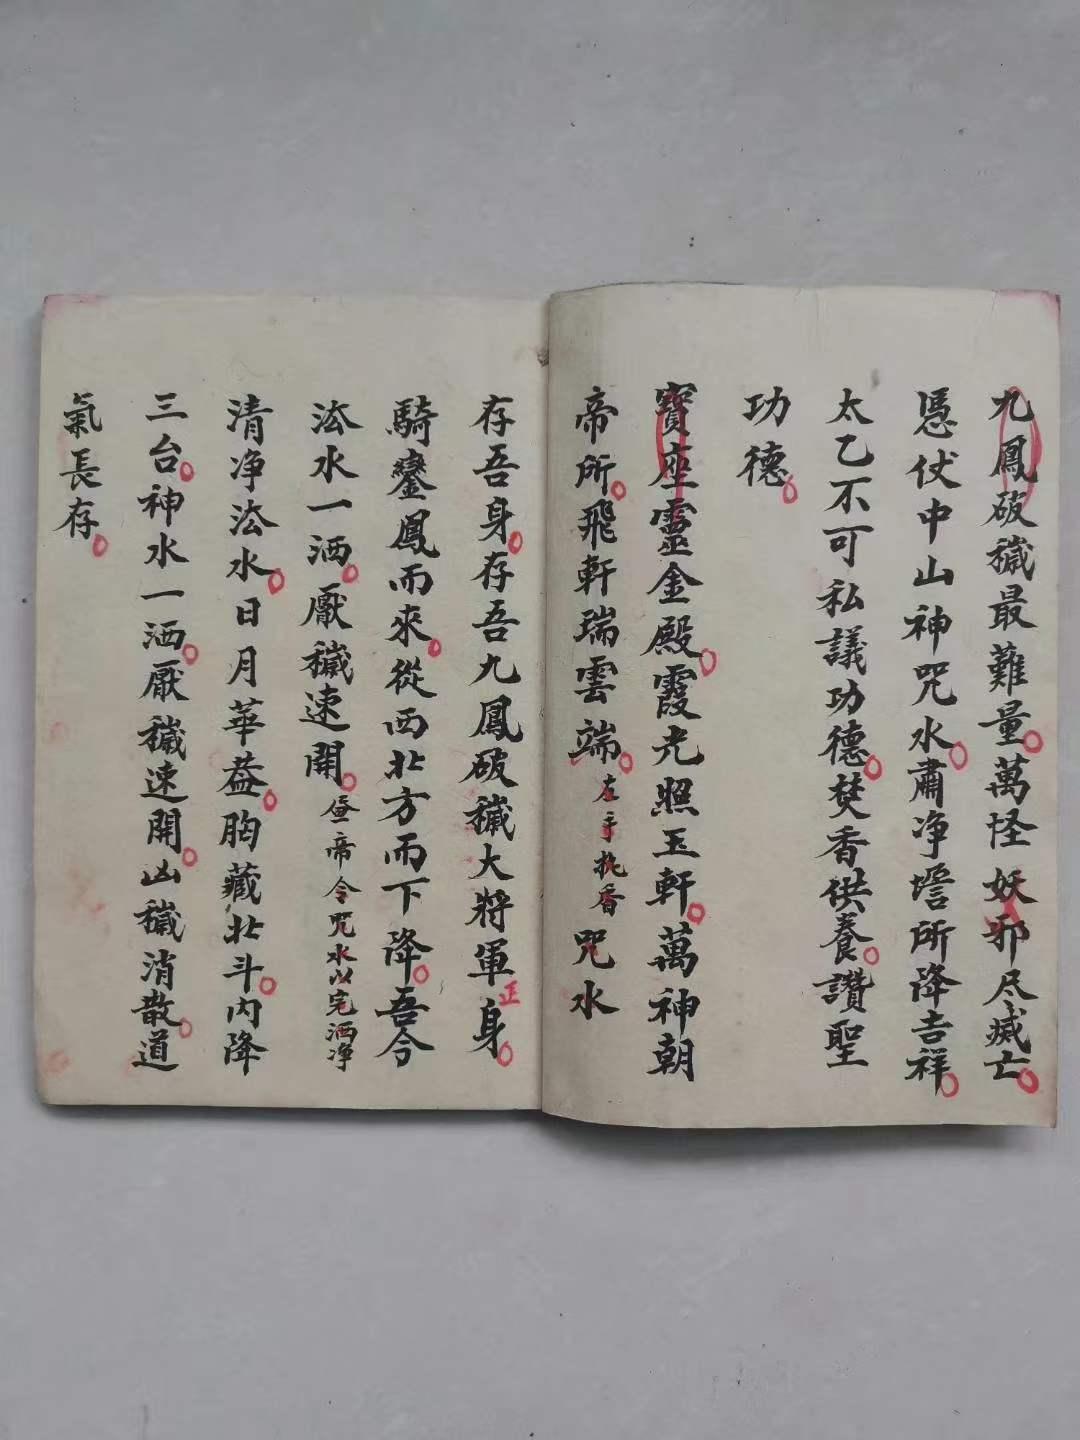 九鳳破穢最難量萬怪妖邪尽滅亡
憑仗中山神咒水肅净壇所降吉祥
太乙不可私議功德焚香供養讚聖
功德
寳座靈金殿霞光照玉軒萬神朝
帝所飛軒瑞雲端左手执香咒水
存吾身存吾九鳳破穢大將軍正身
騎鑾鳳而來從西北方而下降吾今
法水一洒厭穢速開叠帝令咒水以完洒净
清净法水日月華蓋胸藏北斗内降
三台神水一洒厭穢速開凶穢消散道
氣長存